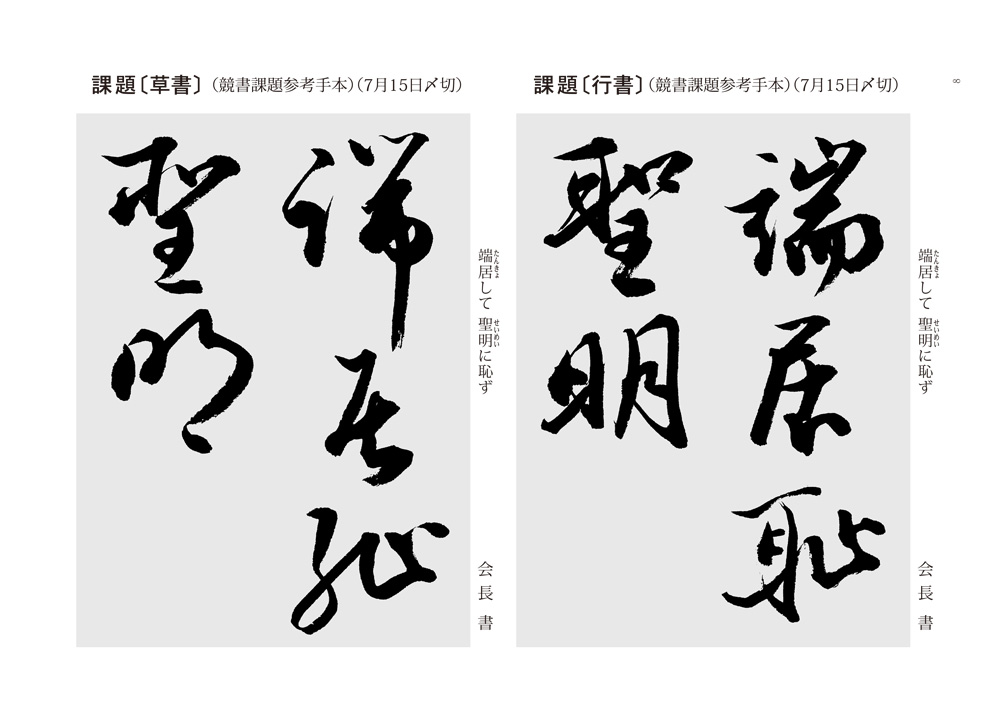 8
課題〔行書〕（競書課題参考手本）（7月15日〆切）
端居恥
聖明
端居して 聖明に恥ず
たんきょ
せいめい
会長 書
課題〔草書〕（競書課題参考手本）（7月15日〆切）
端居恥
聖明
端居して 聖明に恥ず
たんきょ
せいめい
会長 書